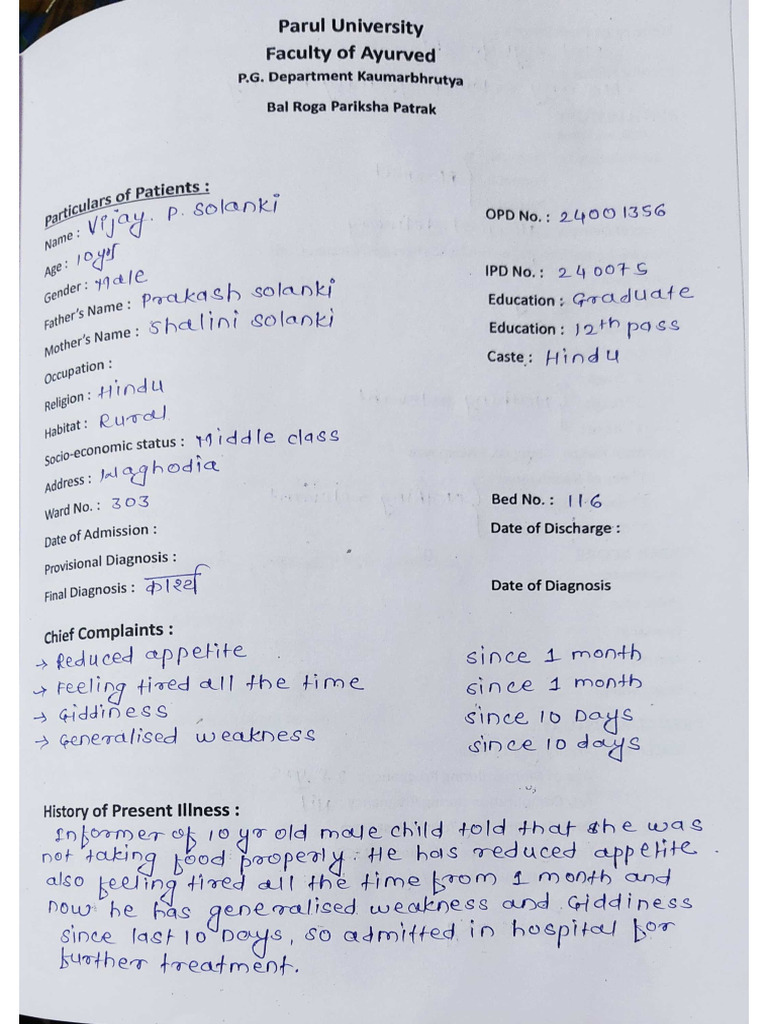 Parul University
Faculty of Ayurved
P.G. Department Kaumarbhrutya
Bal Roga Pariksha Patrak
Particulars of Patients :
Name : Vijay. P. Solanki
OPD No. : 24001356
Age : 10yrs
Gender : Male
IPD No. : 240075
Father's Name : Prakash Solanki
Education : Graduate
Mother's Name : Shalini Solanki
Education : 12th pass
Occupation :
Caste : Hindu
Religion : Hindu
Habitat : Rural
Socio-economic status : Middle class
Address : Waghodia
Ward No. : 303
Bed No. : 116
Date of Admission :
Date of Discharge :
Provisional Diagnosis :
Final Diagnosis : कार्श्य
Date of Diagnosis
Chief Complaints :
→ Reduced appetite since 1 month
→ Feeling tired all the time since 1 month
→ Giddiness since 10 Days
→ Generalised weakness since 10 days
History of Present Illness :
Informer of 10 yr old male child told that she was
not taking food properly. He has reduced appetite.
also feeling tired all the time from 1 month and
now he has generalised weakness and Giddiness
since last 10 Days, so admitted in hospital for
further treatment.